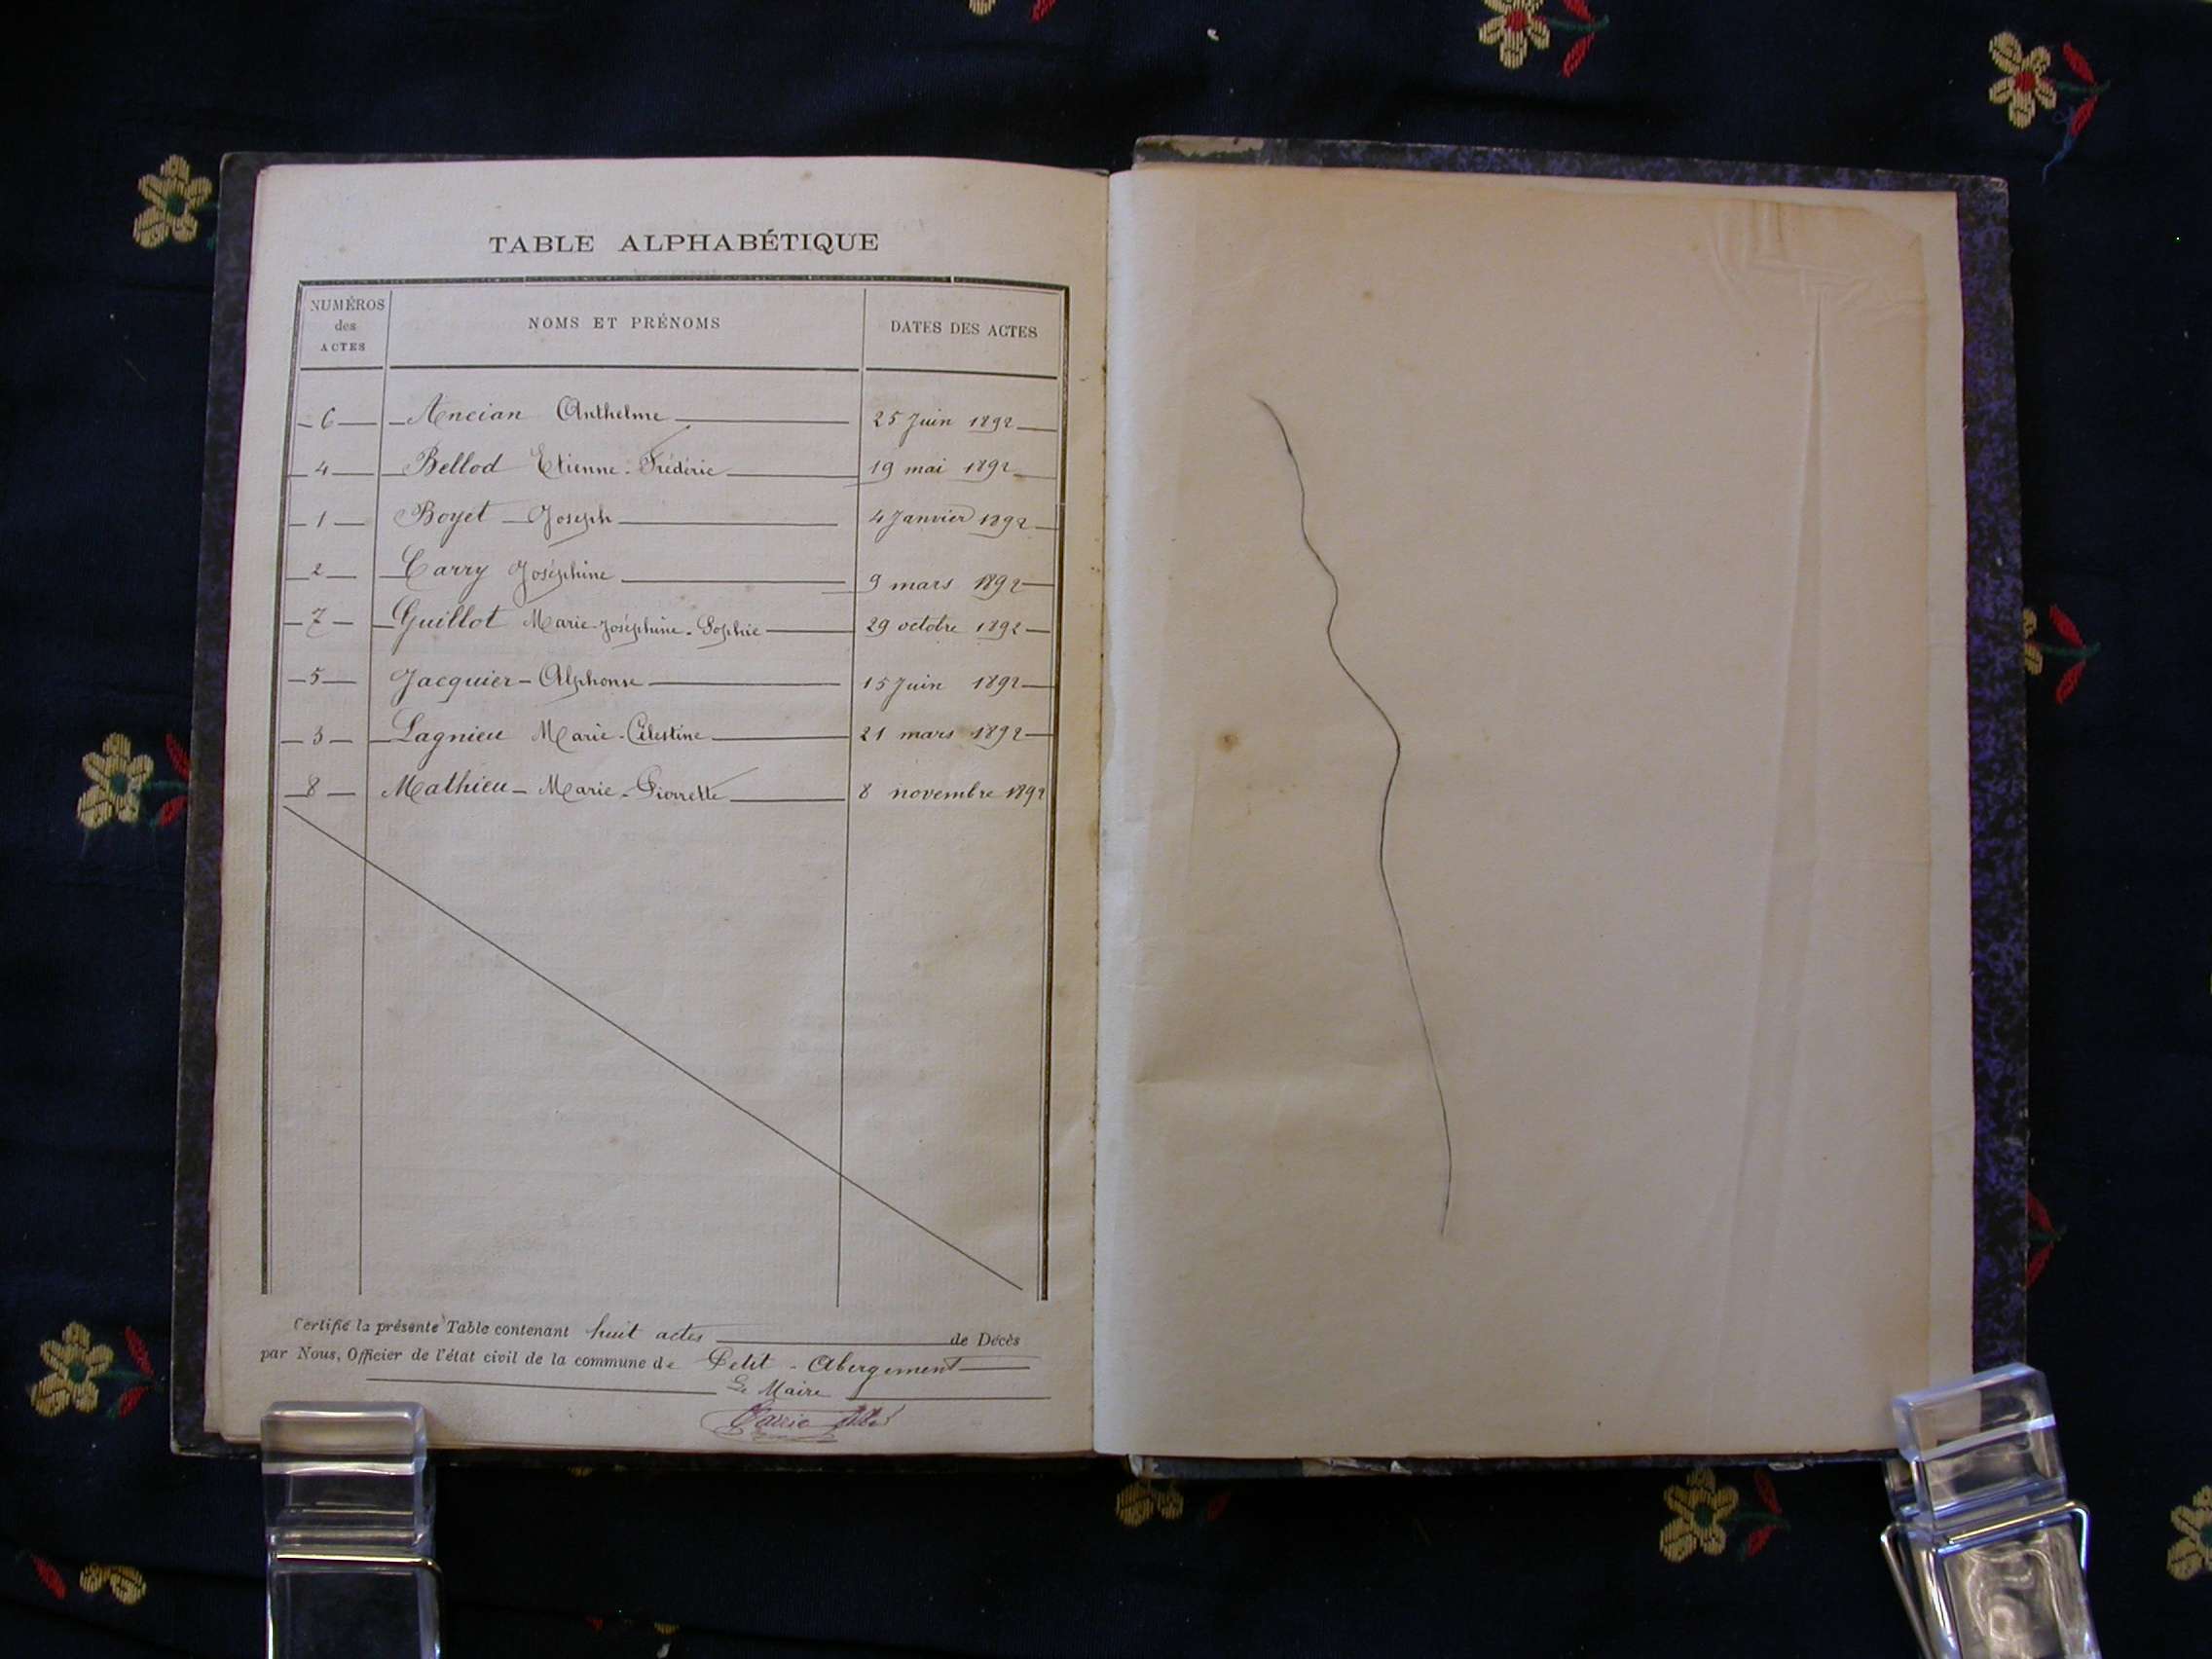 TABLE ALPHABÉTIQUE
NUMÉROS des ACTES NOMS ET PRÉNOMS DATES DES ACTES
6 Ancian Anthelme 25 Juin 1892
4 Bellod Etienne-Frédéric 19 mai 1892
1 Boyet Joseph 4 Janvier 1892
2 Carry Joséphine 9 mars 1892
7 Guillot Marie-Joséphine-Sophie 29 octobre 1892
5 Jacquier-Alphonse 15 Juin 1892
3 Lagnieu Marie-Célestine 21 mars 1892
8 Mathieu-Marie-Pierrette 8 novembre 1892
Certifié la présente Table contenant huit actes de Décès
par Nous, Officier de l'état civil de la commune de Petit-Abergement
Le Maire